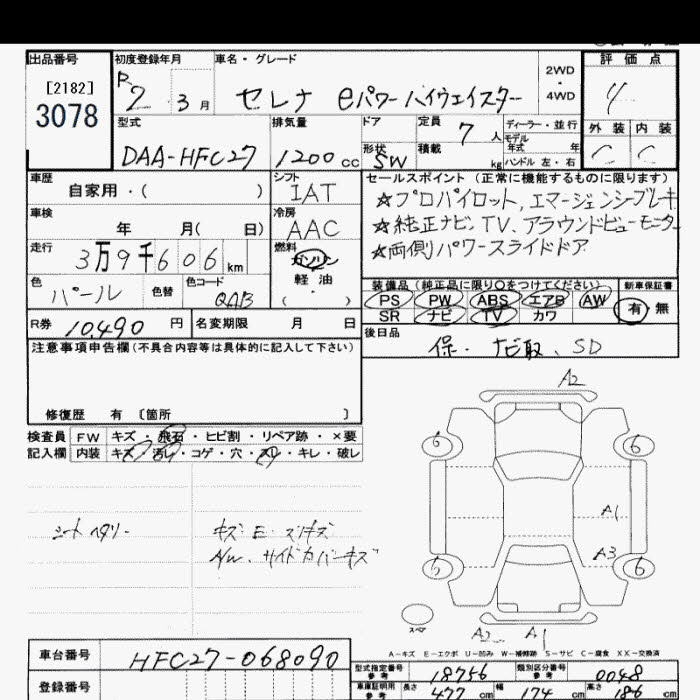 出品番号 初度登録年月 車名・グレード 2WD・4WD 評価点
[2182]
3078
R2 3月 セレナ eパワーハイウェイスター 4
型式 排気量 ドア 定員 7人 ディーラー・並行 外装 内装
DAA-HFC27 1200cc 形状 SW 積載 kg モデル年式 年 ハンドル 左・右 C C
車歴 シフト セールスポイント(正常に機能するものに限ります)
自家用・( ) IAT ☆プロパイロット,エマージェンシーブレーキ
車検 冷房 ☆純正ナビ,TV、アラウンドビューモニター
年 月( 日) AAC ☆両側パワースライドドア
走行 燃料
3万9千606km ガソリン
軽油
( ・ )
色 色替 色コード 装備品(純正品に限り○をつけてください) 新車保証書
パール QAB PS PW ABS エアB AW 有 無
SR ナビ TV カワ
R券 10,490円 名変期限 月 日 後日品
保・ナビ取、SD
注意事項申告欄(不具合内容等は具体的に記入して下さい)
修復歴 有 〔箇所 〕
検査員 FW キズ・飛石・ヒビ割・リペア跡・×要
記入欄 内装 キズ・汚レ・コゲ・穴・スレ・キレ・破レ
A2
6 6
A1
A3
6 6
スペア
A2 A1
シートヘタリー キズ・E・スリキズ
A/W、サイドカバーキズ
A-キズ E-エクボ U-凹み W-補修跡 S-サビ C-腐食 XX-交換済
車台番号 HFC27-068090
登録番号
型式指定番号 参考 18756 類別区分番号 参考 0048
車庫証明用 参考 長さ 477cm 幅 174cm 高さ 186cm